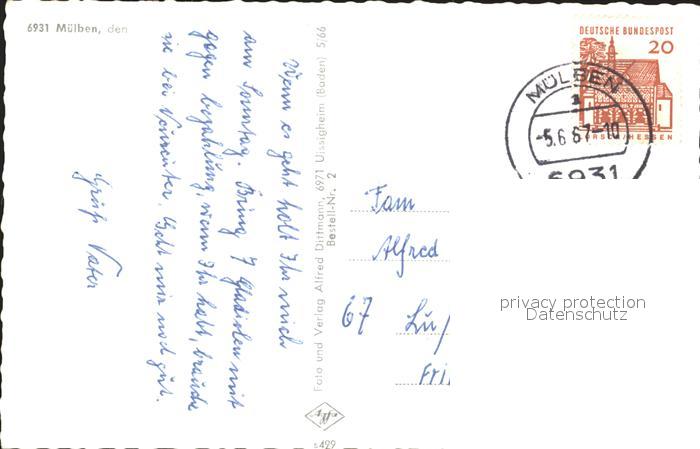 6931 Mülben, den
Wenn es geht holt Ihr mich
am Sonntag. Bring 7 Gladiolen mit
gegen bezahlung, wenn Ihr habt, brauche
sie bei Verwandter. Geht mir noch gut.
Gruß Vater
Foto und Verlag Alfred Dittmann, 6971 Uissigheim (Baden) 5/66
Bestell-Nr. 2
s429
DEUTSCHE BUNDESPOST
20
LORSCH/HESSEN
MÜLBEN
a
-5.6.67-10
6931
Fam
Alfred
67 Lu/
Fri
privacy protection
Datenschutz